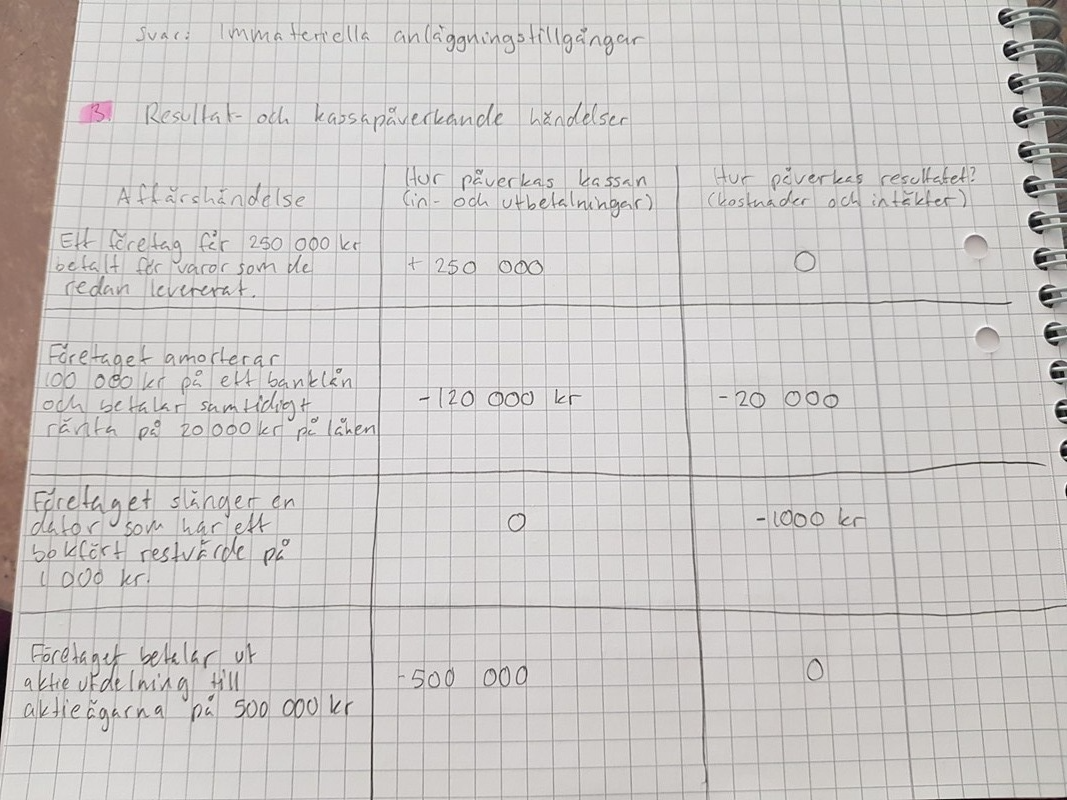 Svar: Immateriella anläggningstillgångar
3. Resultat- och kassapåverkande händelser
Affärshändelse
Hur påverkas kassan
(in- och utbetalningar)
Hur påverkas resultatet?
(kostnader och intäkter)
Ett företag får 250 000 kr
betalt för varor som de
redan levererat.
+ 250 000
0
Företaget amorterar
100 000 kr på ett banklån
och betalar samtidigt
ränta på 20 000 kr på lånen
-120 000 kr
-20 000
Företaget slänger en
dator som har ett
bokfört restvärde på
1 000 kr.
0
-1000 kr
Företaget betalar ut
aktieutdelning till
aktieägarna på 500 000 kr
-500 000
0